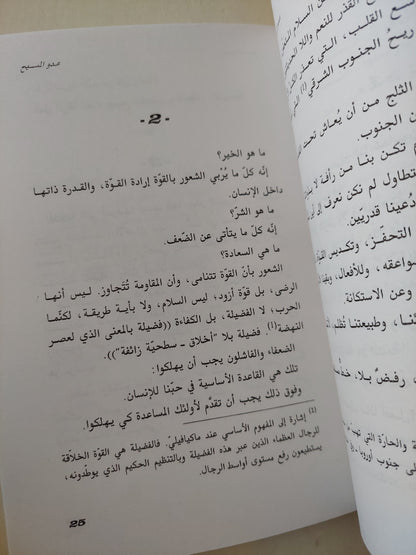 عدو المسيح
-2-
ما هو الخير؟
إنّه كلّ ما يُرْبي الشعور بالقوّة إرادة القـوّة، والقـدرة ذاتهـا
داخل الإنسان.
ما هو الشرّ؟
إنّه كلّ ما يتأتى عن الضّعف.
ما هي السعادة؟
الشعور بأنّ القوّة تتنامى، وأن المقاومة تُتَجاوز. ليس أنـهـا
الرضى، بل قوّة أزود، ليس السلام، ولا بـأيـة طريـقـة، لكنّـمـا
الحرب، لا الفضيلة، بل الكفاءة ((فضيلة بالمعنى الذي لعصر
النهضة(1) فضيلة بلا "أخلاق - سطحيّة زائفة")).
الضعفاء والفاشلون يجب أن يهلكوا.
تلك هي القاعدة الأساسية في حبّنا للإنسان.
وفوق ذلك يجب أن تقدّم لأولئك المساعدة كي يهلكوا.
(2) إشارة إلى المفهوم الأساسي عند ماكيافيلي. فالفضيلة هي القوّة الخلاّقة
للرجال العظماء، الذين عبر هذه الفضيلة وبالتنظيم الحكيم الذي يوطّدونه،
يستطيعون رفع مستوى أواسط الرجال.
25
القذر للنعم واللا
القلب، الـتـي تعـذر
ريـح الجنوب الشرقي (1)
الثلج مـن أن يُعـاش تحـت
ن الجنوب.
م تكـن بنـا مـن رأفـة لا
تطاول لم نكن نعرف إلى أين
دُعينا قدريّين.
التحفّـز، وتكديـس
واعقه، وللأفعال،
وعن الاستكانة.
نَـا، وطبيعتنا
رفـضٌ بـلا،
والحارّة التي تهب
لى جنوب أوروبا